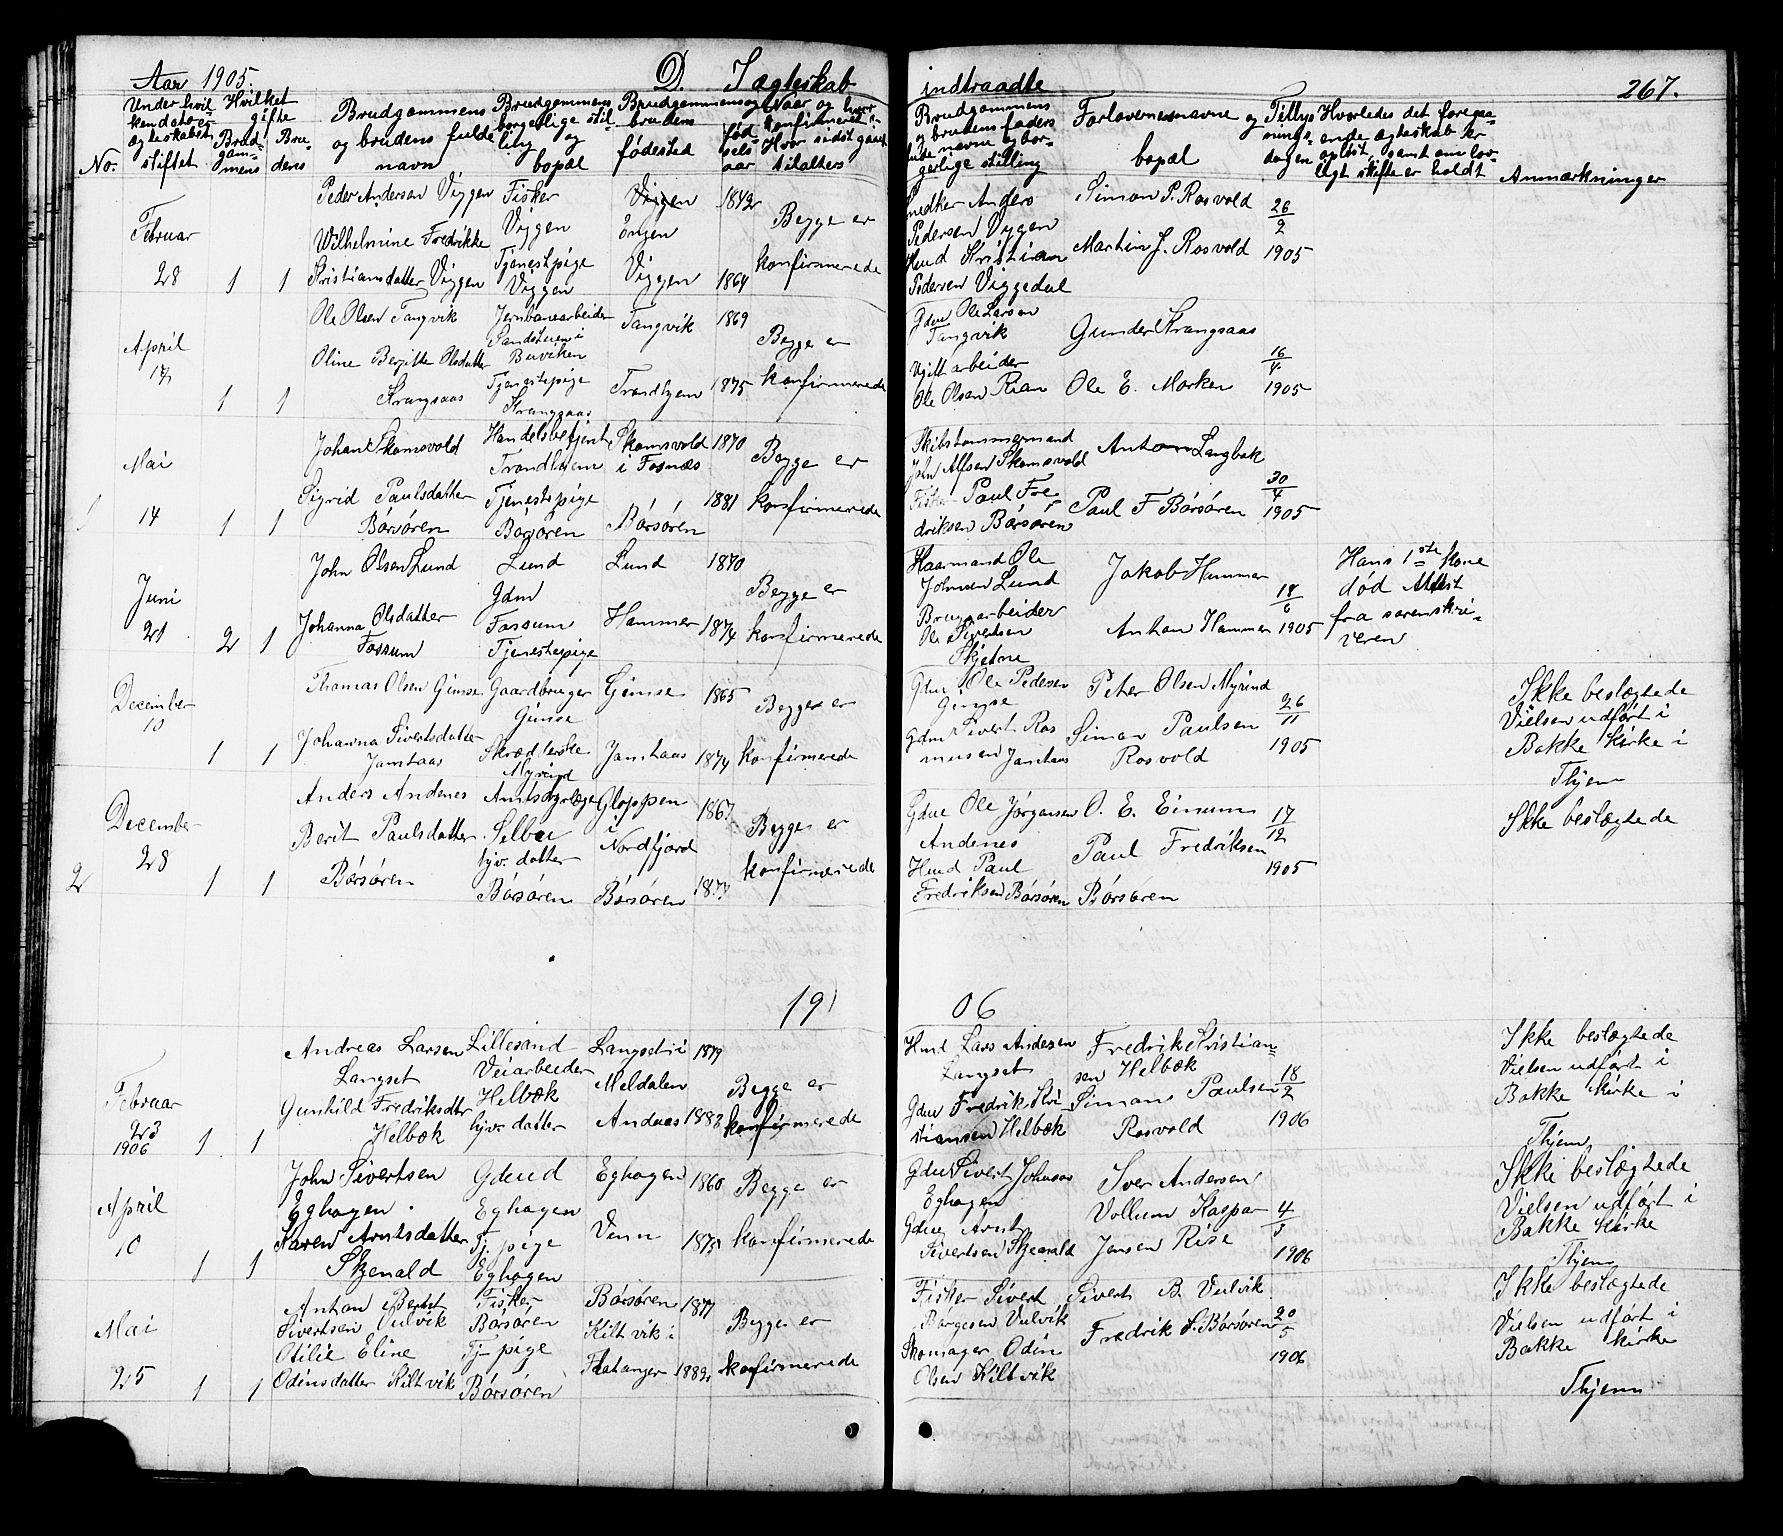 Aar 1905.
D. I ægteskab indtraadte
267.
No.
Under hvil
ken dato æg
teskabet
stiftet
Hvilket
gifte
Brud-
gom-
mens
Bru-
dens
Brudgommens
og brudens fulde
navn
Brudgommens
borgerlige stil-
ling og
bopæl
Brudgommens og
brudens
fødested
fød
sels
aar
Naar og hvor
konfirmeret
Hvor sidst gaaet
til alters
Brudgommens
og brudens faders
fulde navne og bor-
gerlige stilling
Forlovernes navne og
bopæl
Tillys-
nings-
dagen
Hvorledes det forega-
aende ægteskab er
opløst, samt om lov-
ligt skifte er holdt
Anmærkninger
Februar
28 1 1
Peder Andersen Viggen
Wilhelmine Fredrikke
Kristiansdatter Viggen
Fisker
Viggen
Tjenestpige
Viggen
Viggen
Viggen
1842
1864
Begge er
konfirmerede
Snedker Anders
Pedersen Vyggen
Hmd Kristian
Pedersen Viggedal
Simon P. Rosvold
Martin J. Rosvold
26
2
1905
April
17 1 1
Ole Olsen Tangvik
Oline Bergitte Olsdatter
Krangsaas
Jernbanearbeider
Sandstuen i
Buviken
Tjenestepige
Krangsaas
Tangvik
Trondhjem
1869
1875
Begge er
konfirmerede
Gdm Ole Larsen
Tangvik
arbeider
Ole Olsen Rian
Gunder Krangsaas
Ole E. Morken
16
4
1905
Mai
1 14 1 1
Johan Skomsvold
Sigrid Paulsdatter
Børsøren
Handelsbetjent
Trondhjem
Tjenestepige
Børsøren
Skomsvold
i Fosnæs
Børsøren
1870
1881
Begge er
konfirmerede
Skibstømmermand
John Alfsen Skomsvold
Fisker Paul Fre
driksen Børsøren
Anton Langbak
Paul F Børsøren
30
4
1905
Juni
21 2 1
John Olsen Lund
Johanna Olsdatter
Fossum
Lund
Gdm
Fossum
Tjenestepige
Lund
Hammer
1870
1874
Begge er
konfirmerede
Haarmand Ole
Johnsen Lund
Brugsarbeider
Ole Sivertsen
Skjetne
Jakob Hammer
Anton Hammer
18
6
1905
Hans 1ste kone
død Attest
fra sorenskri-
veren
December
10 1 1
Thomas Olsen Gimse
Johanna Sivertsdatter
Jamtaas
Gaardbruger
Gimse
Skrædderske
Myrind
Gimse
Jamtaas
1865
1874
Begge er
konfirmerede
Gdm Ole Pedersen
Gimse
Gdm Sivert Ras
mussen Jamtaas
Peter Olsen Myrind
Simon Paulsen
Rosvold
26
11
1905
Ikke beslægtede
Vielsen udført i
Bakke Kirke i
Thjem
December
2 28 1 1
Anders Andenes
Berit Paulsdatter
Børsøren
Amtsdyrlæge
Selbu
hjv. datter
Børsøren
Gloppen
i
Nordfjord
Børsøren
1867
1877
Begge er
konfirmerede
Gdm Ole Jørgensen
Andenes
Hmd Paul
Fredriksen Børsøren
O. E. Einum
Paul Fredriksen
Børsøren
17
12
1905
Ikke beslægtede
1906
Februar
23
1906 1 1
Andreas Larsen
Langset
Gunhild Fredriksdtr
Helbæk
Lillesand
Veiarbeider
Helbæk
hjv. datter
Langset i
Meldalen
Andaas
1879
1883
Begge er
konfirmerede
Hmd Lars Andersen
Langset
Gdm Fredrik Kri
stiansen Helbæk
Fredrik Kristian-
sen Helbæk
Simon Paulsen
Rosvold
18
2
1906
Ikke beslægtede
Vielsen udført i
Bakke Kirke i
Thjem
April
10 1 1
John Sivertsen
Eghagen.
Karen Arntsdatter
Skjenald
Gdmd
Eghagen
Tj. pige
Eghagen
Eghagen
Venn
1860
1875
Begge er
konfirmerede
Gdm Sivert Johnsen
Eghagen
Gdm Arnt
Sivertsen Skjenald
Iver Andersen
Vollum Kaspar
Jensen Rise
4
3
1906
Ikke beslægtede
Vielsen udført i
Bakke Kirke
Thjem
Mai
25 1 1
Anton Bernt
Sivertsen Vulvik
Otilie Eline
Odinsdatter Kiltvik
Fisker
Børsøren
Tj- pige
Børsøren
Børsøren
Kiltvik i
Flatanger
1877
1882
Begge er
konfirmerede
Fisker Sivert
Borgesen Vulvik
Skomager Odin
Olsen Kiltvik
Sivert B. Vulvik
Fredrik P. Børsøren
20
5
1906
Ikke beslægtede
Vielsen udført i
Bakke Kirke
Thjem